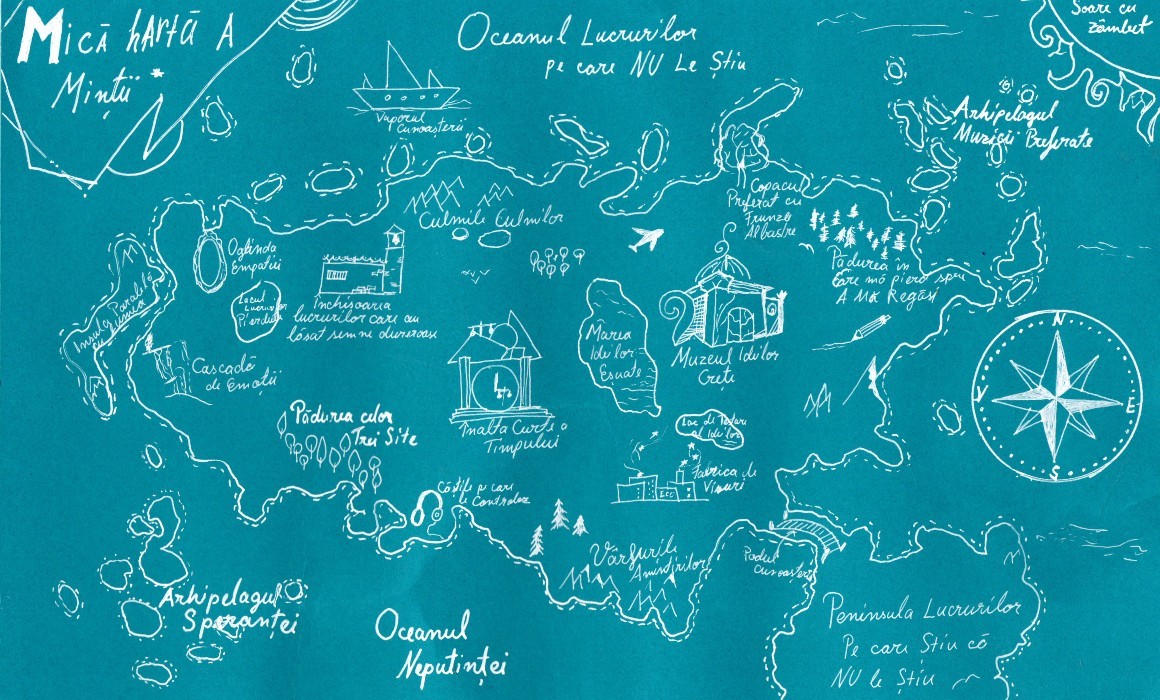 Mică hartă a
Minții*
Oceanul Lucrurilor
pe care NU Le Știu
Soare cu
zâmbet
Vaporul
Cunoașterii
Arhipelagul
Muzicii Preferate
Culmile Culmilor
Copacul
Preferat cu
Frunze
Albastre
Oglinda
Empatiei
Pădurea în
Care mă pierd spre
A Mă Regăsi
Insula Paralelă
Lacul
Lucrurilor
Pierdute
Închisoarea
lucrurilor care au
lăsat semne dureroase
Marea
Ideilor
Esuate
Muzeul Ideilor
Crețe
N
V
E
S
Cascadă
de Emoții
Pădurea celor
Trei Site
Înalta Curte a
Timpului
Lac de Testare
al Ideilor
Fabrica de
Visuri
ECO
Căștile pe care
le Controlez
Vârfurile
Amintirilor
Podul
Cunoașterii
Arhipelagul
Speranței
Oceanul
Neputinței
Peninsula Lucrurilor
Pe care Știu că
NU le Știu